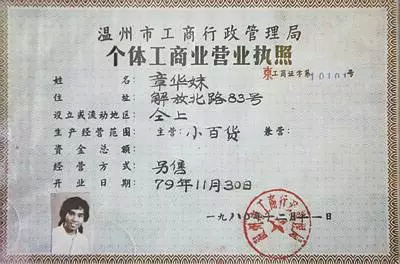 温州市工商行政管理局
个体工商业营业执照
东工商证字第10101号
姓名: 章华妹
住址: 解放北路83号
设立或流动地区: 仝上
生产经营范围: 主营: 小百货 兼营:
资金总额:
经营方式: 另售
开业日期: 79年11月30日
一九八〇年十二月十一日
温州市工商行政